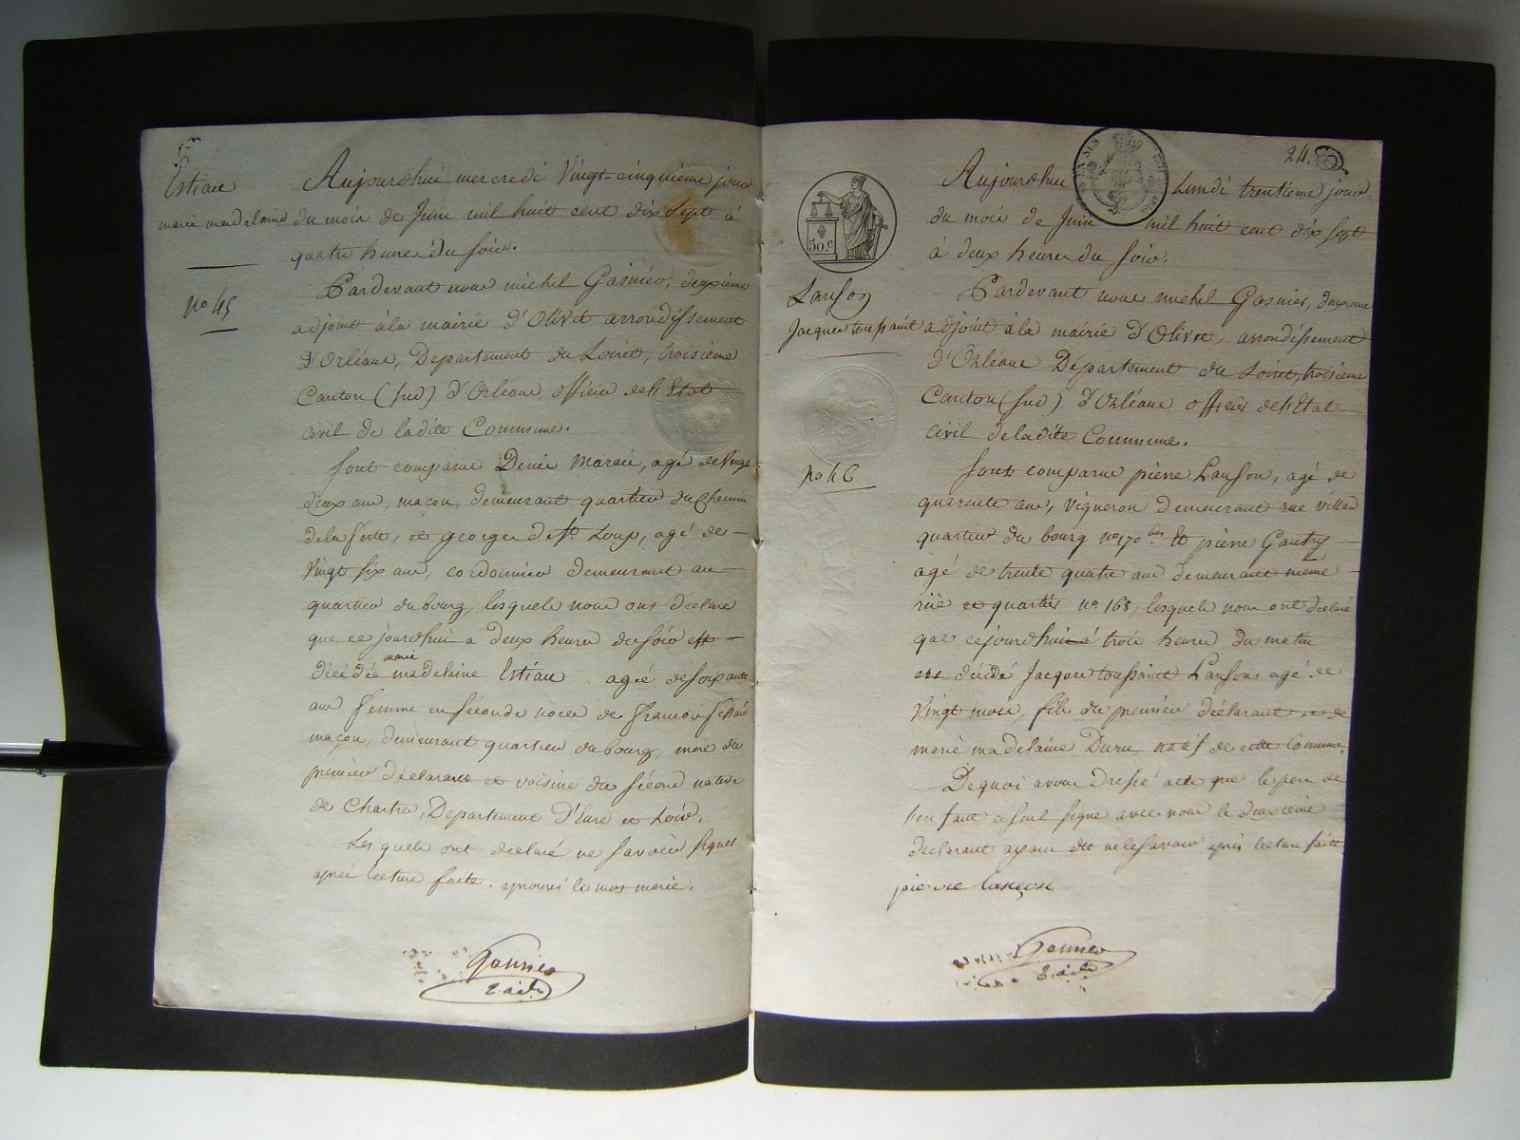 Estiau
marie madelaine
no 45
Aujourdhui mercredi Vingt-cinquième jour
du mois de Juin mil huit cent dix Sept à
quatre heures du soir.
Pardevant nous michel Gasnier, deuxième
adjoint à la mairie d'Olivet arrondissement
d'Orléans, Departement du Loiret, troisième
Canton (sud) d'Orléans officier de l'Etat
civil de ladite Commune.
Sont comparus Denis marais, agé de Vingt
deux ans, maçon, demeurant quartier du Chemin
de la ferté, et george de St Loup, agé de
Vingt six ans, cordonnier demeurant au
quartier du bourg, lesquels nous ont déclaré
que ce jourdhui a deux heures du soir est
marie
décédée madelaine Estiau agée de soixante
ans femme en séconde noces de françois
maçon, demeurant quartier du bourg, mere du
premier déclarant et voisine du sécond native
de Chartres, Departement d'Eure et Loir.
Lesquels ont declaré ne savoir signer
après lecture faite. aprouvé le mot marie.
Gasnier
2. adj.
24.
30 c
Lanson
Jacques toussaint
no 46
Aujourdhui Lundi trentieme jour
du mois de Juin mil huit cent dix sept
à deux heures du soir.
Pardevant nous michel Gasnier, deuxième
adjoint à la mairie d'Olivet, arrondissement
d'Orléans Département du Loiret, troisieme
Canton (sud) d'Orléans officier de l'Etat
civil de ladite Commune.
Sont comparus pierre Lanson, agé de
quarente ans, vigneron demeurant rue
quartier du bourg no 170 bis et pierre Gautry
agé de trente quatre ans demeurant meme
rüe et quartier no 168, lesquels nous ont déclaré
que cejourdhui à trois heures du matin
est décédé Jacques toussaint Lanson agé de
Vingt mois, fils du premier déclarant et de
marie madelaine Duru natif de cette Commune.
De quoi avons dressé acte que le pere de
l'enfant a seul signé avec nous le deuxieme
declarant ayant dit ne le savoir après lecture faitte
pierre lançon
Gasnier
2. adj.